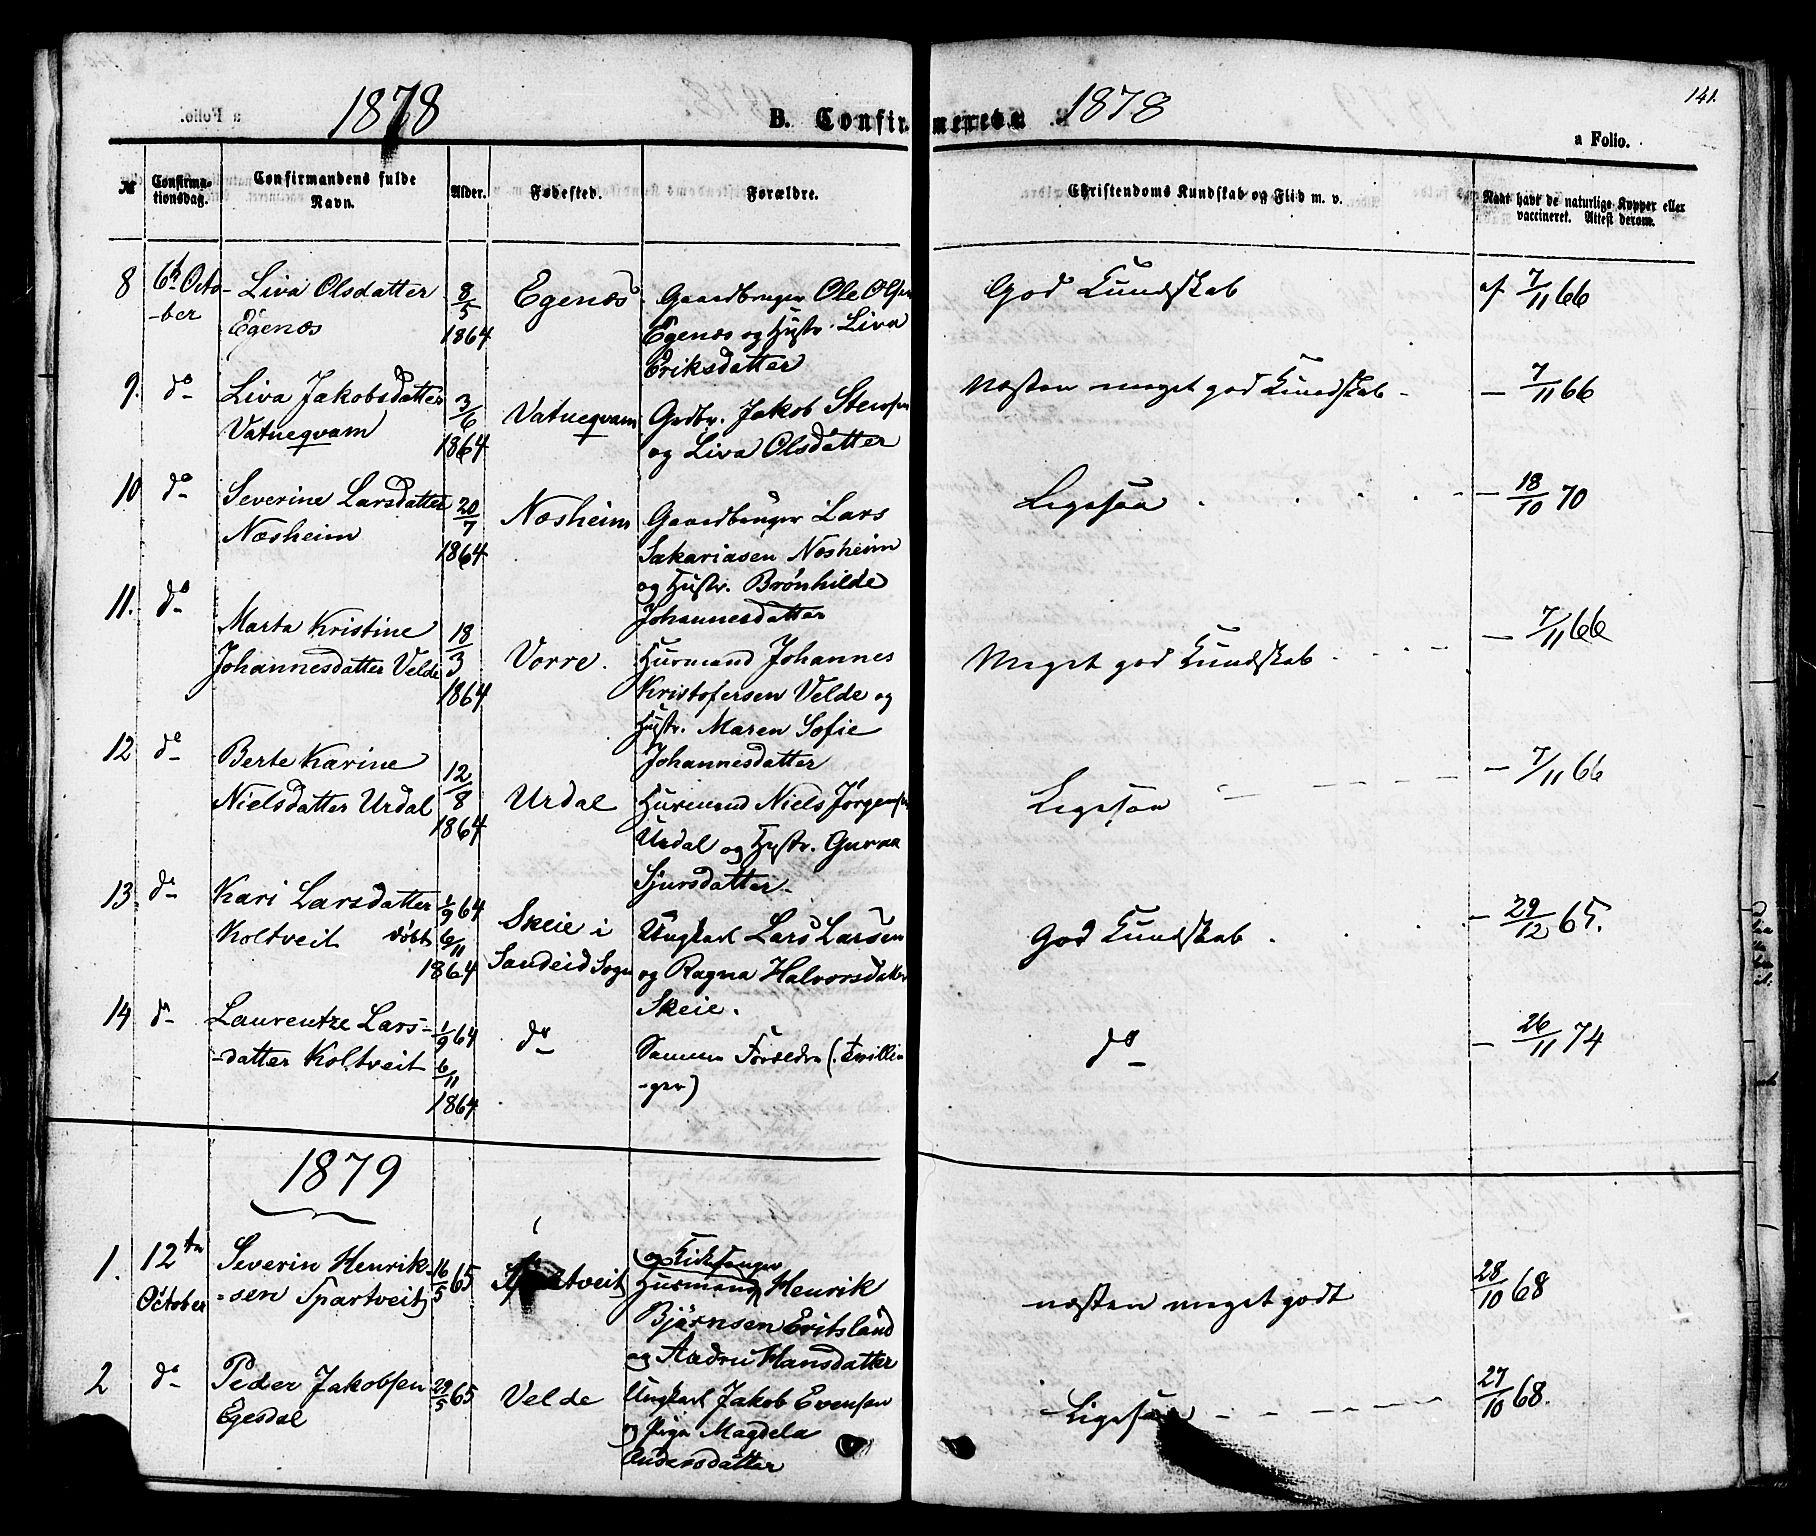 1878
B. Confirmerede.
1878
141.
a Folio.
№
Confirma-
tionsdag.
Confirmandens fulde
Navn.
Alder.
Fødested.
Forældre.
Christendoms Kundskab og Flid m. v.
Naar havt de naturlige Kopper eller
vaccineret. Attest derom.
8 6te Octo- Liva Olsdatter 8/5 Egenæs Gaardbruger Ole Olsen God Kundskab af 7/11 66
-ber Egenæs 1864 Egenæs og Hustr. Liva
Eriksdatter
9. do Liva Jakobsdatter 3/6 Vatneqvam Grdbr. Jakob Stensen Næsten meget god Kundskab - 7/11 66
Vatneqvam 1864 og Liva Olsdatter
10 do Severine Larsdatter 20/7 Næsheim Gaardbruger Lars Ligesaa - 18/10 70
Næsheim 1864 Sakariasen Næsheim
og Hustr. Brønhilde
Johannesdatter
11. do Marta Kristine 18/3 Vorre. Husmand Johannes Meget god Kundskab - 7/11 66
Johannesdatter Velde 1864 Kristofersen Velde og
Hustr. Maren Sofie
Johannesdatter
12 do Berte Karine 12/8 Urdal Husmand Niels Jørgensen Ligesaa - 7/11 66
Nielsdatter Urdal 1864 Urdal og Hustr. Gurina
Sjursdatter
13. do Kari Larsdatter 1/9 64 Skeie i Ungkarl Lars Larsen God Kundskab - 29/12 65.
Koltveit døbt 6/11 1864 Sandeid Sogn og Ragna Halvorsdatter
Skeie.
14 do Laurentze Lars- 1/9 64 do Samme Forældre (Tvillin- do - 26/11 74
-datter Koltveit 6/11 1864 -ger)
1879
1. 12te Severin Henrik- 16/5 65 tveit og Kirkesanger næsten meget godt 28/10 68
October -sen Spartveit Husmand Henrik
Bjørnsen Eritsland
og Hansdatter
2 do Peder Jakobsen 29/5 65 Velde Ungkarl Jakob Evensen Ligesaa 27/10 68.
Egesdal og Pige Magdela
Andersdatter